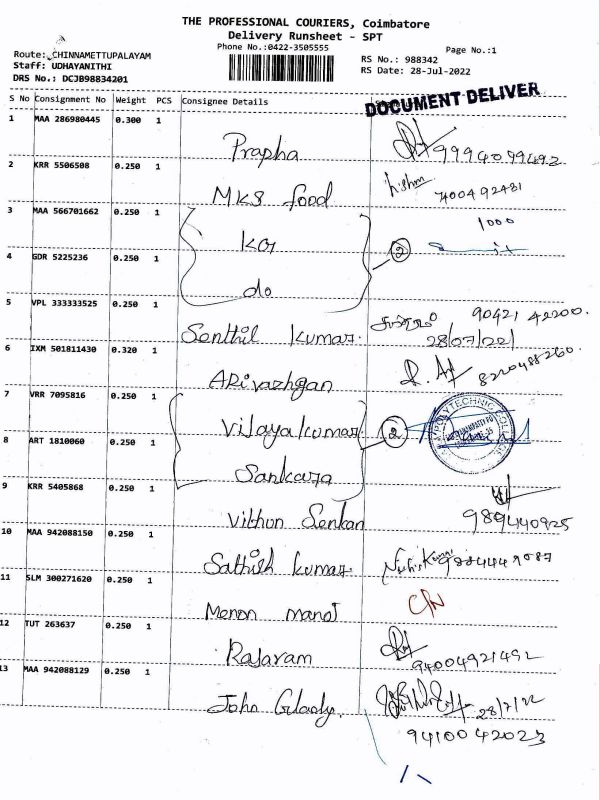 THE PROFESSIONAL COURIERS, Coimbatore
Delivery Runsheet - SPT
Phone No.:0422-3505555
Page No.:1
Route: CHINNAMETTUPALAYAM
RS No.: 988342
Staff: UDHAYANITHI
RS Date: 28-Jul-2022
DRS No.: DCJB98834201
S No Consignment No Weight PCS Consignee Details
DOCUMENT DELIVER
1 MAA 286980445 0.300 1
Prapha 9994099492
2 KRR 5506508 0.250 1
MKS food 7400492481
3 MAA 566701662 0.250 1
1000
KG 2
4 GDR 5225236 0.250 1
do
5 VPL 333333525 0.250 1
90421 42200.
Senthil Kumar. 28/07/22
6 IXM 501811430 0.320 1
ARivazhgan 8220488260
7 VRR 7095816 0.250 1
Vijayakumar 2
POLYTECHNIC COLLEGE
8 ART 1810060 0.250 1
Sankara
9 KRR 5405868 0.250 1
Vithun Senkan 989440925
10 MAA 942088150 0.250 1
Sathish Kumar
11 SLM 300271620 0.250 1
Menon manoj
12 TUT 263637 0.250 1
Rajaram 94004921492
13 MAA 942088129 0.250 1
John 28/7/22
9410042023